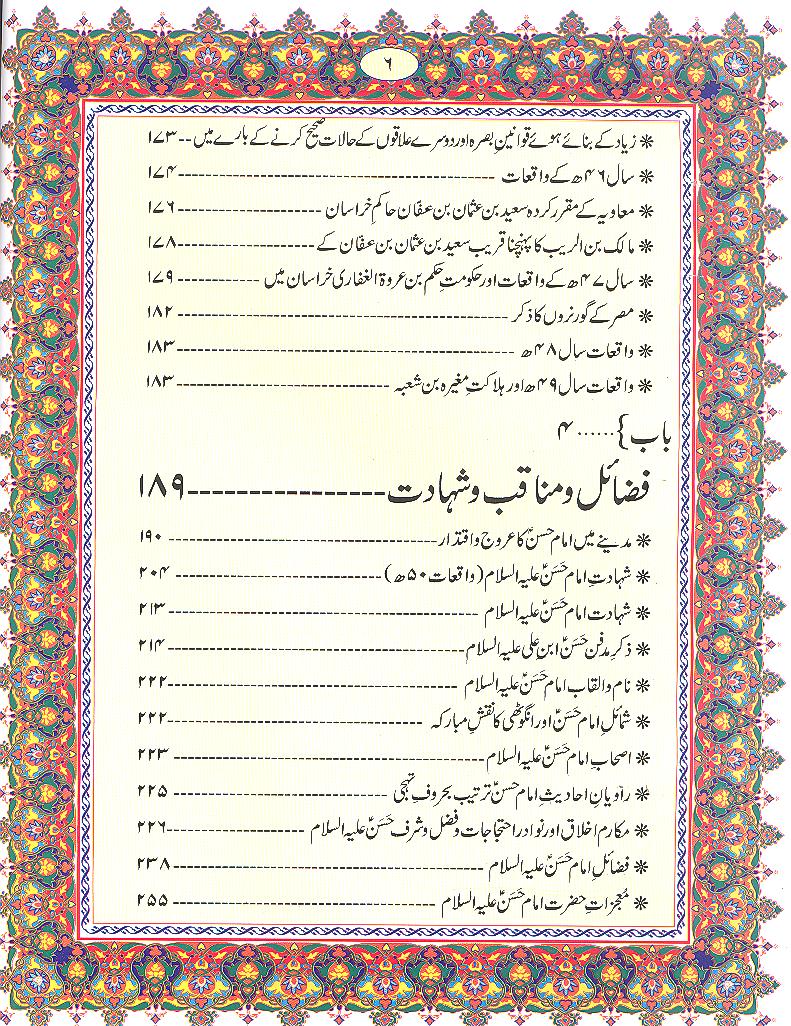 ۶
* زیاد کے بنائے ہوئے قوانینِ بصرہ اور دوسرے علاقوں کے حالات صحیح کرنے کے بارے میں -- ۱۷۳
* سال ۴۶ھ کے واقعات ---------- ۱۷۴
* معاویہ کے مقرر کردہ سعید بن عثمان بن عفان حاکمِ خراسان ---------- ۱۷۶
* مالک بن الریب کا پہنچنا قریب سعید بن عثمان بن عفان کے ---------- ۱۷۸
* سال ۴۷ھ کے واقعات اور حکومتِ حکم بن عروۃ الغفاری خراسان میں ---------- ۱۷۹
* مصر کے گورنروں کا ذکر ---------- ۱۸۲
* واقعات سال ۴۸ھ ---------- ۱۸۳
* واقعات سال ۴۹ھ اور ہلاکتِ مغیرہ بن شعبہ ---------- ۱۸۳
باب} ...... ۴
فضائل و مناقب و شہادت ---------- ۱۸۹
* مدینے میں امام حسنؑ کا عروج و اقتدار ---------- ۱۹۰
* شہادتِ امام حَسَنؑ علیہ السلام (واقعات ۵۰ھ) ---------- ۲۰۴
* شہادت امام حَسَنؑ علیہ السلام ---------- ۲۱۳
* ذکرِ مدفن حَسَنؑ ابنِ علی علیہ السلام ---------- ۲۱۴
* نام و القاب امام حَسَنؑ علیہ السلام ---------- ۲۲۲
* شمائلِ امام حَسَنؑ اور انگوٹھی کا نقشِ مبارکہ ---------- ۲۲۲
* اصحابِ امام حَسَنؑ علیہ السلام ---------- ۲۲۳
* راویانِ احادیثِ امام حسنؑ ترتیب بحروفِ تہجی ---------- ۲۲۵
* مکارم اخلاق اور نوادر احتجاجات و فضل و شرف حَسَنؑ علیہ السلام ---------- ۲۲۶
* فضائلِ امام حَسَنؑ علیہ السلام ---------- ۲۳۸
* مُعجزاتِ حضرت امام حَسَنؑ علیہ السلام ---------- ۲۵۵